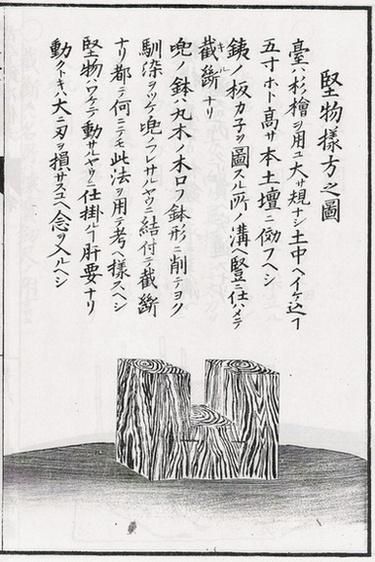 堅物様方之圖
臺ハ杉檜ヲ用ユ大サ規ナシ土中ヘイケ込ヿ
五寸ホト高サ本土壇ニ傚フヘシ
銕ノ板カ子ヲ圖スル所ノ溝ヘ竪ニ仕ハメテ
截斷ナリ
キル
兜ノ鉢ハ丸木ノ木口ヲ鉢形ニ削テヨク
馴染ヲツケ兜ノフレサルヤウニ結付テ截斷
ナリ都テ何ニテモ此法ヲ用テ考ヘ様スヘシ
堅物ハワケテ動サルヤウニ仕掛ルヿ肝要ナリ
動クトキハ大ニ刃ヲ損サスユヘ念ヲ入ルヘシ